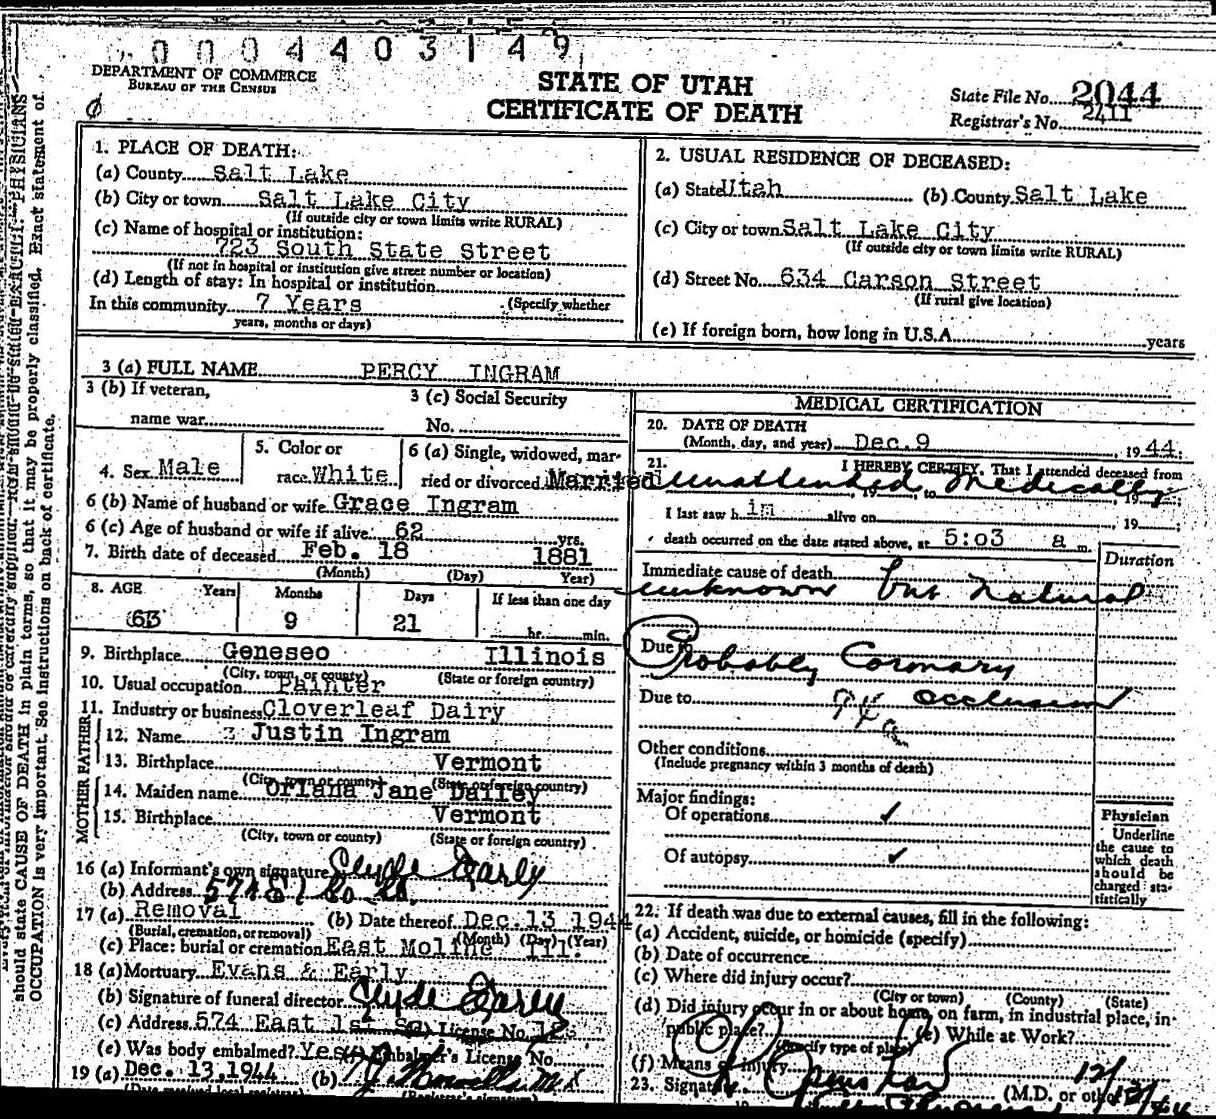 0004403149
DEPARTMENT OF COMMERCE
BUREAU OF THE CENSUS
STATE OF UTAH
CERTIFICATE OF DEATH
State File No. 2044
Registrar's No. 2411
1. PLACE OF DEATH:
(a) County Salt Lake
(b) City or town Salt Lake City
(If outside city or town limits write RURAL)
(c) Name of hospital or institution:
723 South State Street
(If not in hospital or institution give street number or location)
(d) Length of stay: In hospital or institution
In this community 7 Years (Specify whether
years, months or days)
2. USUAL RESIDENCE OF DECEASED:
(a) State Utah (b) County Salt Lake
(c) City or town Salt Lake City
(If outside city or town limits write RURAL)
(d) Street No. 634 Carson Street
(If rural give location)
(e) If foreign born, how long in U.S.A. years
3 (a) FULL NAME PERCY INGRAM
3 (b) If veteran,
name war
3 (c) Social Security
No.
4. Sex Male
5. Color or
race White
6 (a) Single, widowed, mar-
ried or divorced Married
6 (b) Name of husband or wife Grace Ingram
6 (c) Age of husband or wife if alive 62 yrs.
7. Birth date of deceased Feb. 18 1881
(Month) (Day) Year)
8. AGE Years Months Days If less than one day
63 9 21 hr. min.
9. Birthplace Geneseo Illinois
(City, town, or county) (State or foreign country)
10. Usual occupation Painter
11. Industry or business Cloverleaf Dairy
FATHER
12. Name Justin Ingram
13. Birthplace Vermont
(City, town or county) (State or foreign country)
MOTHER
14. Maiden name Oriana Jane Dailey
15. Birthplace Vermont
(City, town or county) (State or foreign country)
16 (a) Informant's own signature Clyde Early
(b) Address 574 E 1 So St.
17 (a) Removal (b) Date thereof Dec. 13 1944
(Burial, cremation, or removal) (Month) (Day) (Year)
(c) Place: burial or cremation East Moline Ill.
18 (a) Mortuary Evans & Early
(b) Signature of funeral director Clyde Early
(c) Address 574 East 1st So. License No.
(e) Was body embalmed? Yes Embalmer's License No.
19 (a) Dec. 13, 1944 (b)
MEDICAL CERTIFICATION
20. DATE OF DEATH
(Month, day, and year) Dec. 9 1944;
21. I HEREBY CERTIFY, That I attended deceased from
unattended Medically
19 to 19
I last saw him alive on , 19 ;
death occurred on the date stated above, at 5:03 a m.
Duration
Immediate cause of death
unknown but natural
Due to Probably Coronary
Due to occlusion
94a
Other conditions
(Include pregnancy within 3 months of death)
Major findings:
Of operations ✓
Of autopsy ✓
Physician
Underline
the cause to
which death
should be
charged sta-
tistically
22. If death was due to external causes, fill in the following:
(a) Accident, suicide, or homicide (specify)
(b) Date of occurrence
(c) Where did injury occur?
(City or town) (County) (State)
(d) Did injury occur in or about home, on farm, in industrial place, in
public place? (e) While at Work?
(Specify type of place)
(f) Means of injury
23. Signature (M.D. or other)
should state CAUSE OF DEATH in plain terms, so that it may be properly classified. Exact statement of
OCCUPATION is very important. See instructions on back of certificate.